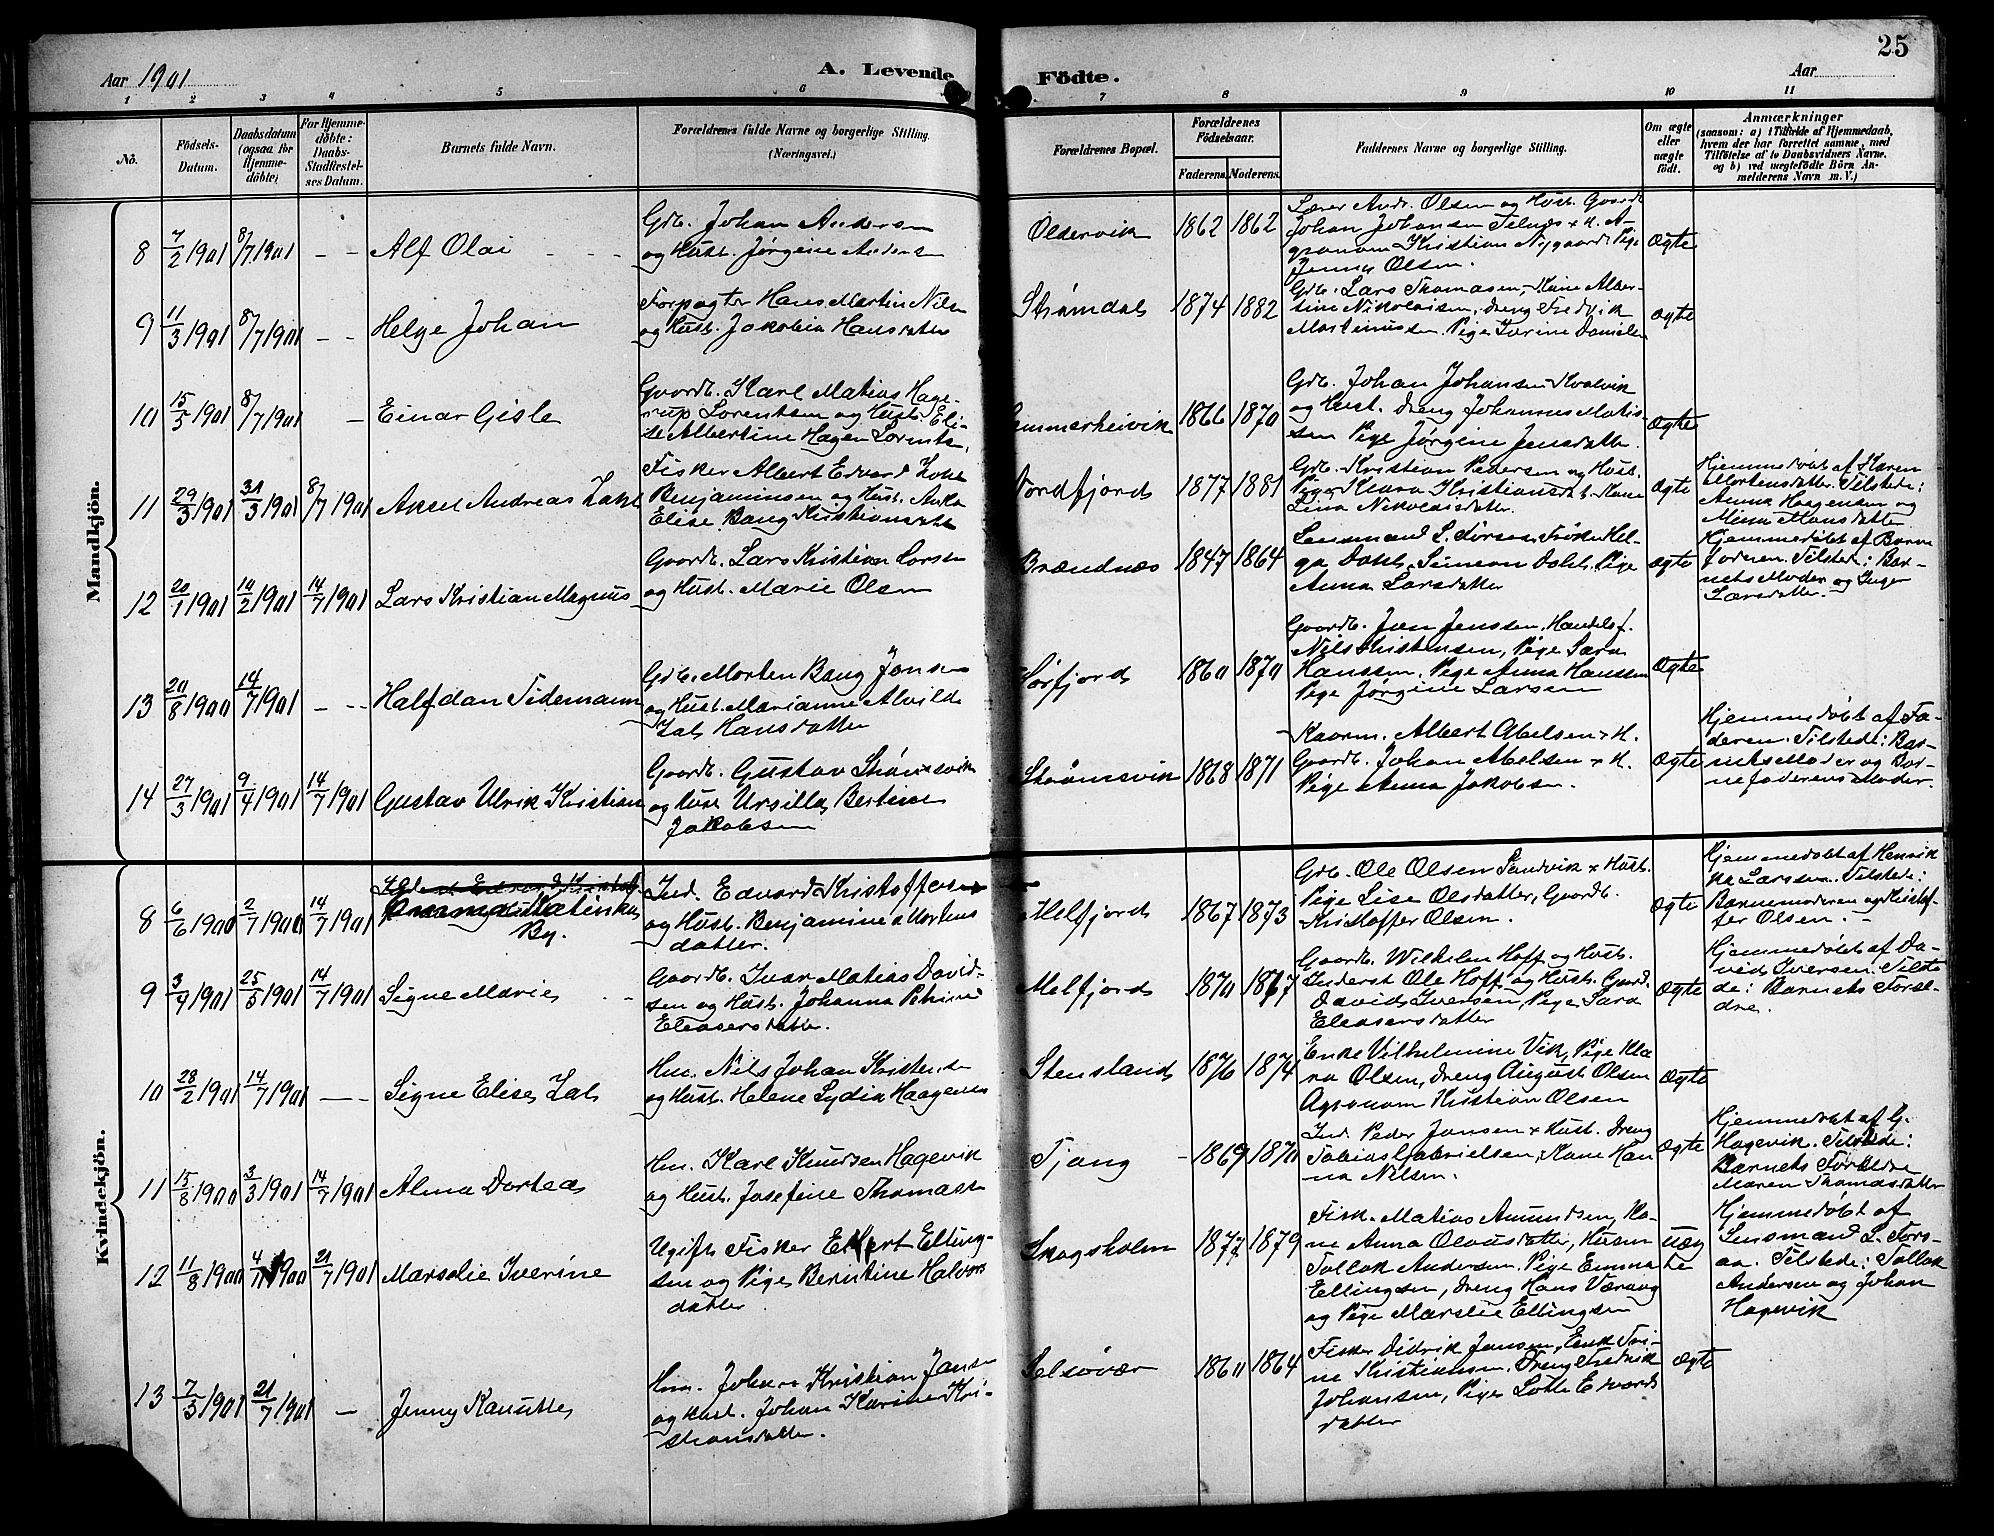 Aar 1901
A. Levende
Födte.
Aar
25
1 2 3 4 5 6 7 8 9 10 11
No.
Födsels-
Datum.
Daabsdatum
(ogsaa for
Hjemme-
döbte)
For Hjemme-
döbte:
Daabs-
Stadfæstel-
ses Datum.
Barnets fulde Navn.
Forældrenes fulde Navne og borgerlige Stilling.
(Næringsvei.)
Forældrenes Bopæl.
Forældrenes
Födselsaar.
Faderens. Moderens.
Faddernes Navne og borgerlige Stilling.
Om ægte
eller
uægte
födt.
Anmærkninger
(saasom: a) i Tilfælde af Hjemmedaab,
hvem der har forrettet samme, med
Tilföielse af to Daabsvidners Navne,
og b) ved uægtefödte Börn An-
melderens Navn m. V.)
Mandkjön.
8 7/2 1901 8/7 1901 - - Alf Olai
Gdb. Johan Andersen
og Hust. Jørgine Andersen
Oldervik 1862 1862
Lærer Andr. Olsen og Hust. Gaardb.
Johan Johansen Telnes + H. A-
gronom Kristian Nygaard Pige
Jenny Olsen.
Ægte
9 11/3 1901 8/7 1901 - - Helge Johan
Forpagter Hans Martin Nilsen
og Hust. Jakobia Hansdatter
Strømdal 1874 1882
Gdb. Lars Thomasen, Kone Alber-
tine Nikolaisen, dreng Fredrik
Martinussen Pige Iverine Danielsen
ægte
10 15/3 1901 8/7 1901 - Einar Gisle
Gaardb. Karl Matias Hage-
rup Lorentsen og Hust. Eli-
se Albertine Hagen Lorents.
1866 1870
Gdb. Johan Johansen Kvalvik
og Hust. dreng Johannes Matis-
sen Pige Jørgine Jensdatter.
Ægte
11 29/3 1901 31/3 1901 8/7 1901 Aksel Andreas Zakl
Fisker Albert Edvard
Benjaminsen og Hust. Anka
Elise Bang Kristiansdatter
Nordfjord 1877 1881
Gdb. Kristian Pedersen og Hust.
Pige Klara Kristiansdat. Kone
Lina Nikolaisdatter.
Ægte
Hjemmedøbt af Karen
Mortensdatter. Tilstede:
Anna Haagensen og
Mina Monsdatter
12 20/1 1901 10/2 1901 14/7 1901 Lars Kristian Magnus
Gaardb. Lars Kristian Larsen
og Hust. Marie Olsen
Brændnæs 1847 1864
Lensmand L. Forsaa, Frøken Hel-
ga Dahl, Simeon Dahl, Pige
Anna Larsdatter
ægte
Hjemmedøbt af Barne
faderen. Tilstede: Bar-
nets Moder og Inger
Larsdatter.
13 20/8 1900 14/7 1901 - - Halfdan Tidemann
Gdb. Morten Bang Jensen
og Hust. Marianne Alvilde
Zal Hansdatter
Sørfjord 1860 1870
Gaardb. Jan Jenssen, Handelsf.
Nils Kristensen, Pige Sara
Hanssen, Pige Anna Hanssen
Pige Jørgine Larsen
Ægte
14 27/3 1901 9/4 1901 14/7 1901 Gustav Ulrik Kristian
Gaardb. Gustav Strømsvik
og Hust Ursilla Bertine
Jakobsen
Strømsvik 1868 1871
Kaarm. Albert Abelsen + H.
Gaardb. Johan Abelsen + H.
Pige Anna Jakobsen.
Ægte
Hjemmedøbt af Fa-
deren. Tilstede: Bar-
nets Moder og Bar-
nefaderens Moder.
Kvindekjön.
8 6/6 1900 2/7 1900 14/7 1901
Emma Katinka
By.
Ind. Edvard Kristoffersen
og Hust. Benjamine Mortens
datter.
Melfjord 1867 1873
Gdb. Ole Olsen Sandvik + Hust.
Pige Lise Olsdatter, Gaardb.
Kristoffer Olsen.
Ægte
Hjemmedøbt af Henrik
ke Larssen. Tilstede:
Barnemoderen og Kristof-
fer Olsen.
9 3/4 1901 25/5 1901 14/7 1901 Signe Marie
Gaardb. Ivar Matias David-
sen og Hust. Johanna Petrine
Eleasersdatter.
Melfjord 1870 1867
Gaardb. Wilhelm Hoff og Hust.
Inderst Ole Hoff og Hust. Gaardb.
David Iversen, Pige Sara
Eleasersdatter
Ægte
Hjemmedøbt af Da-
vid Iversen. Tilste
de: Barnets Foræl-
dre.
10 28/2 1901 14/7 1901 - - Signe Elise Zal
Hm. Nils Johan Kristensen
og Hust. Helene Lydia Haagensen
Stensland 1876 1874
Enke Vilhelmine Vik, Pige Kla
ra Olsen, dreng August Olsen
Agronom Kristian Olsen
Ægte
11 15/8 1900 3/3 1901 14/7 1901 Alma Dortea
Hm. Karl Knudsen Hagevik
og Hust. Josefine Thomasen
Tjong 1869 1870
Ind. Peder Jansen + Hust. Dreng
Tobias Gabrielsen, Kone Han
na Nelsen.
Ægte
Hjemmedøbt af G.
Hagevik. Tilstede:
Barnets Forældre
Maren Thomasdatter
12 11/8 1900 4/11 1900 21/7 1901 Marselie Iverine
Ugift Fisker Ekkert Elling-
sen og Pige Berntine Halvors
datter
Skogsholm 1877 1879
Fisk. Matias Amundsen, Ko-
ne Anna Olausdatter, Husm
Tollak Andersen, Pige Emma
Ellingsen, dreng Hans Værang
og Pige Marselie Ellingsen
uæg
te
Hjemmedøbt af
Lensmand L. Fors-
aa. Tilstede: Tollak
Andersen og Johan
Hagevik
13 7/3 1901 21/7 1901 - Jenny Kanutte
Hm. Johan Kristian Jansen
og Hust. Johan Karine Kri-
stiansdatter.
Selsøvær 1860 1864
Fisker Didrik Jansen, Enk Tri-
ne Kristiansen. Dreng Fredrik
Johansen, Pige Lotte Edvards
datter
Ægte